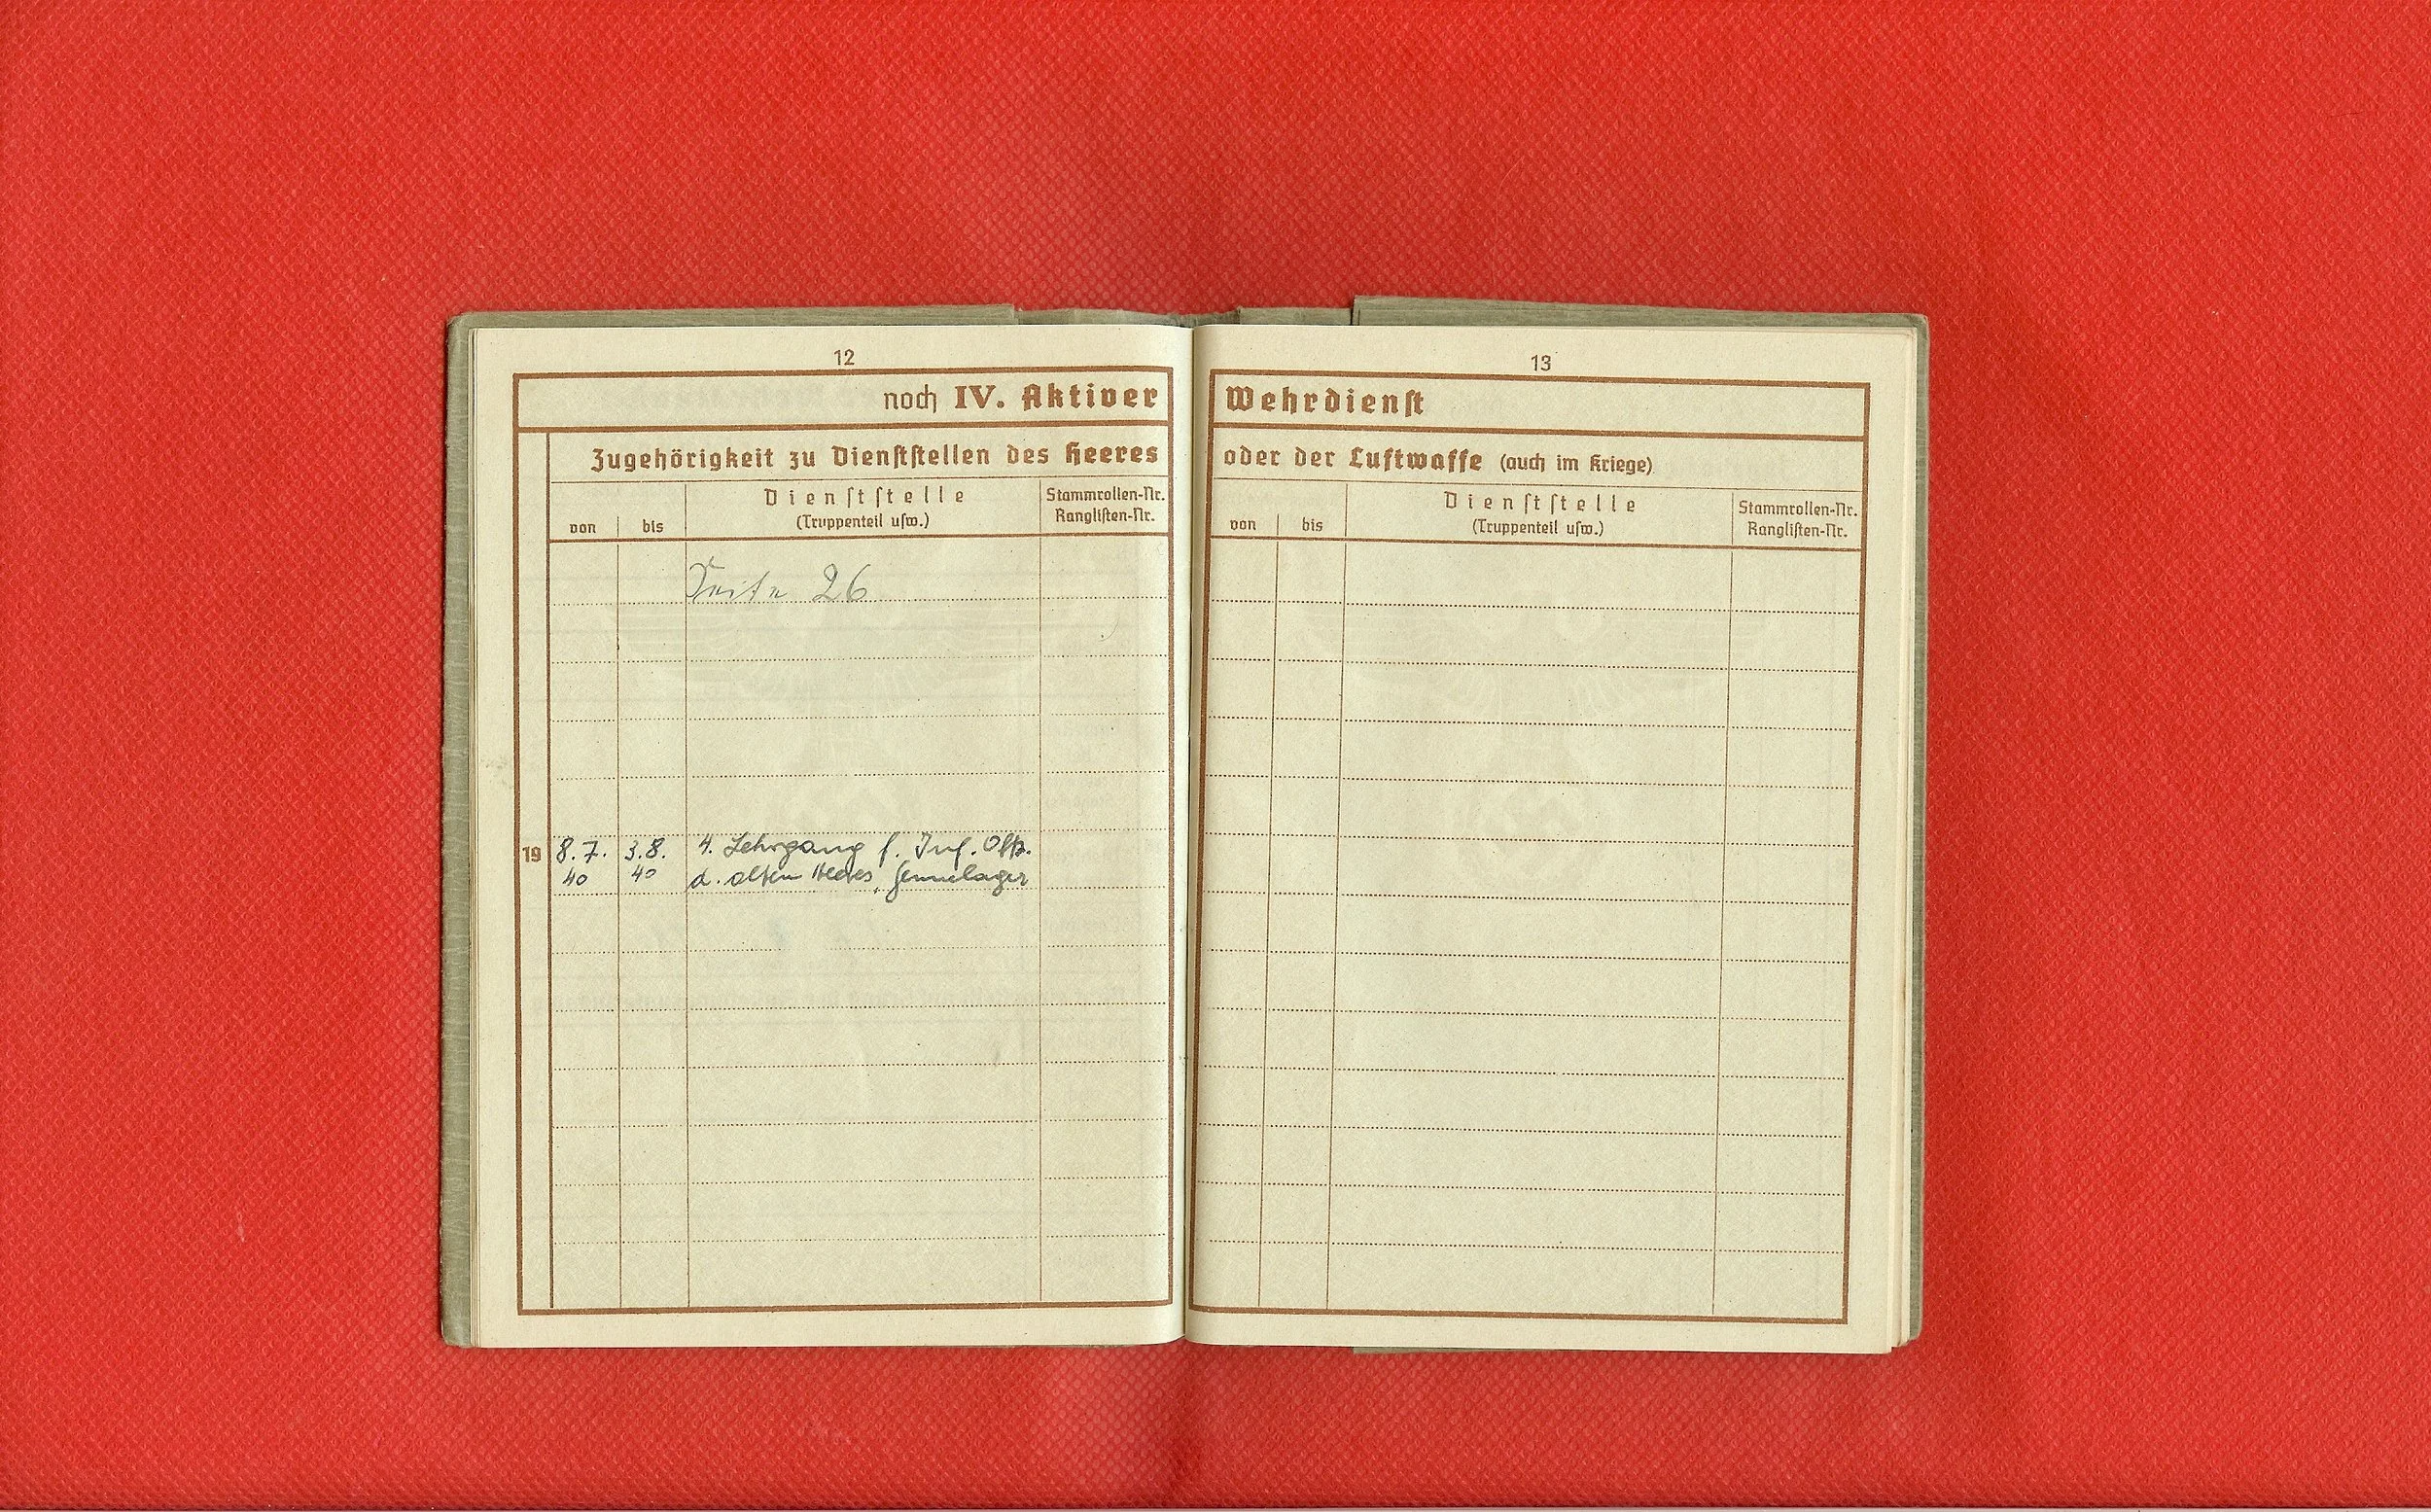 12
noch IV. Aktiver
Zugehörigkeit zu Dienststellen des Heeres
von bis Dienststelle (Truppenteil usw.) Stammrollen-Nr. Ranglisten-Nr.
Seite 26
19 8.7. 3.8. 4. Lehrgang f. Inf. Offz.
40 40 d. alten Heeres, Sennelager
13
Wehrdienst
oder der Luftwaffe (auch im Kriege)
von bis Dienststelle (Truppenteil usw.) Stammrollen-Nr. Ranglisten-Nr.